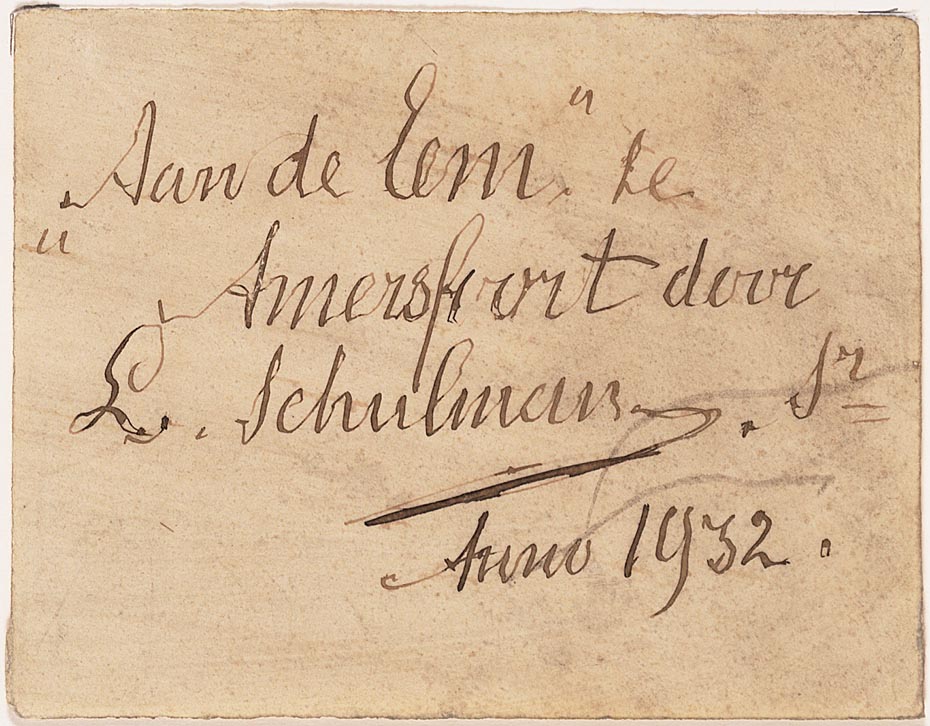 „Aan de Eem" te
Amersfoort door
L. Schulman. Sr
Anno 1932.